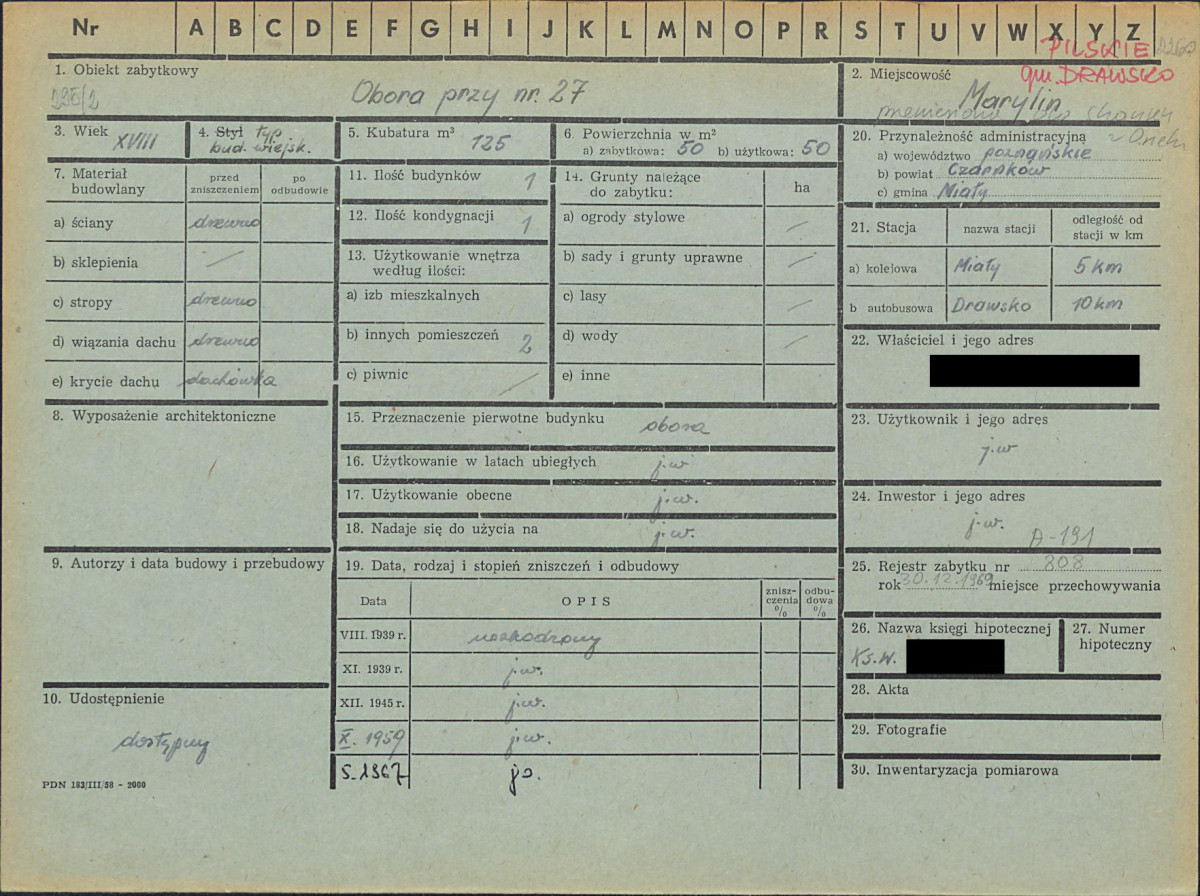 Nr A B C D E F G H I J K L M N O P R S T U V W X Y Z
PILSKIE
gm. DRAWSKO
1. Obiekt zabytkowy
Obora przy nr. 27
2. Miejscowość
Marylin
3. Wiek XVIII
4. Styl typ
bud. wiejsk.
5. Kubatura m³
125
6. Powierzchnia w m²
a) zabytkowa: 50 b) użytkowa: 50
20. Przynależność administracyjna
a) województwo poznańskie
b) powiat Czarnków
c) gmina Miały
7. Materiał budowlany
przed zniszczeniem
po odbudowie
a) ściany drewno
b) sklepienia —
c) stropy drewno
d) wiązania dachu drewno
e) krycie dachu dachówka
8. Wyposażenie architektoniczne
9. Autorzy i data budowy i przebudowy
10. Udostępnienie
dostępny
PDN 183/III/58 - 2000
11. Ilość budynków 1
12. Ilość kondygnacji 1
13. Użytkowanie wnętrza
według ilości:
a) izb mieszkalnych
b) innych pomieszczeń 2
c) piwnic —
14. Grunty należące
do zabytku:
ha
a) ogrody stylowe —
b) sady i grunty uprawne —
c) lasy —
d) wody —
e) inne
15. Przeznaczenie pierwotne budynku obora
16. Użytkowanie w latach ubiegłych j.w
17. Użytkowanie obecne j.w.
18. Nadaje się do użycia na j.w.
19. Data, rodzaj i stopień zniszczeń i odbudowy
Data
OPIS
znisz-
czenia
%
odbu-
dowa
%
VIII. 1939 r. uszkodzony
XI. 1939 r. j.w.
XII. 1945 r. j.w.
X. 1959 j.w.
5. 1967 jw.
21. Stacja
nazwa stacji
odległość od
stacji w km
a) kolejowa Miały 5 km
b autobusowa Drawsko 10 km
22. Właściciel i jego adres
23. Użytkownik i jego adres
j.w
24. Inwestor i jego adres
j.w.
A-191
25. Rejestr zabytku nr 808
rok 30.12.1969 miejsce przechowywania
26. Nazwa księgi hipotecznej
Ks.W.
27. Numer
hipoteczny
28. Akta
29. Fotografie
30. Inwentaryzacja pomiarowa